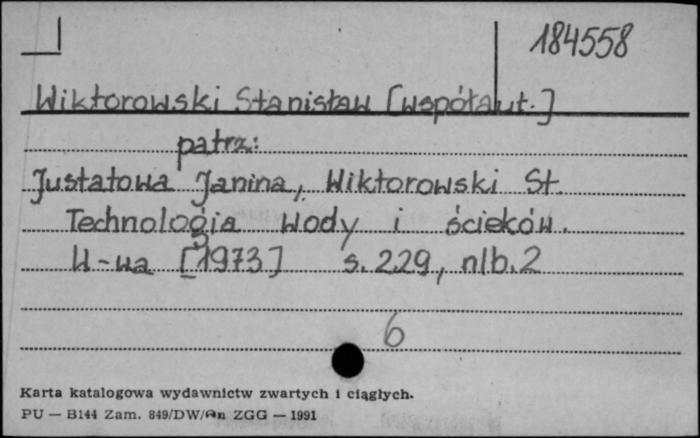 184558
Wiktorowski Stanisław [współaut.]
patrz:
Justatowa Janina, Wiktorowski St.
Technologia wody i ścieków.
W-wa [1973] s. 229, nlb. 2
6
Karta katalogowa wydawnictw zwartych i ciągłych.
PU — B144 Zam. 849/DW/An ZGG — 1991